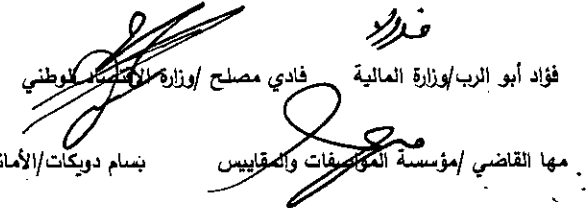 فؤاد أبو الرب/وزارة المالية فادي مصلح /وزارة الاقتصاد الوطني
مها القاضي /مؤسسة المواصفات والمقاييس بسام دويكات/الأمان